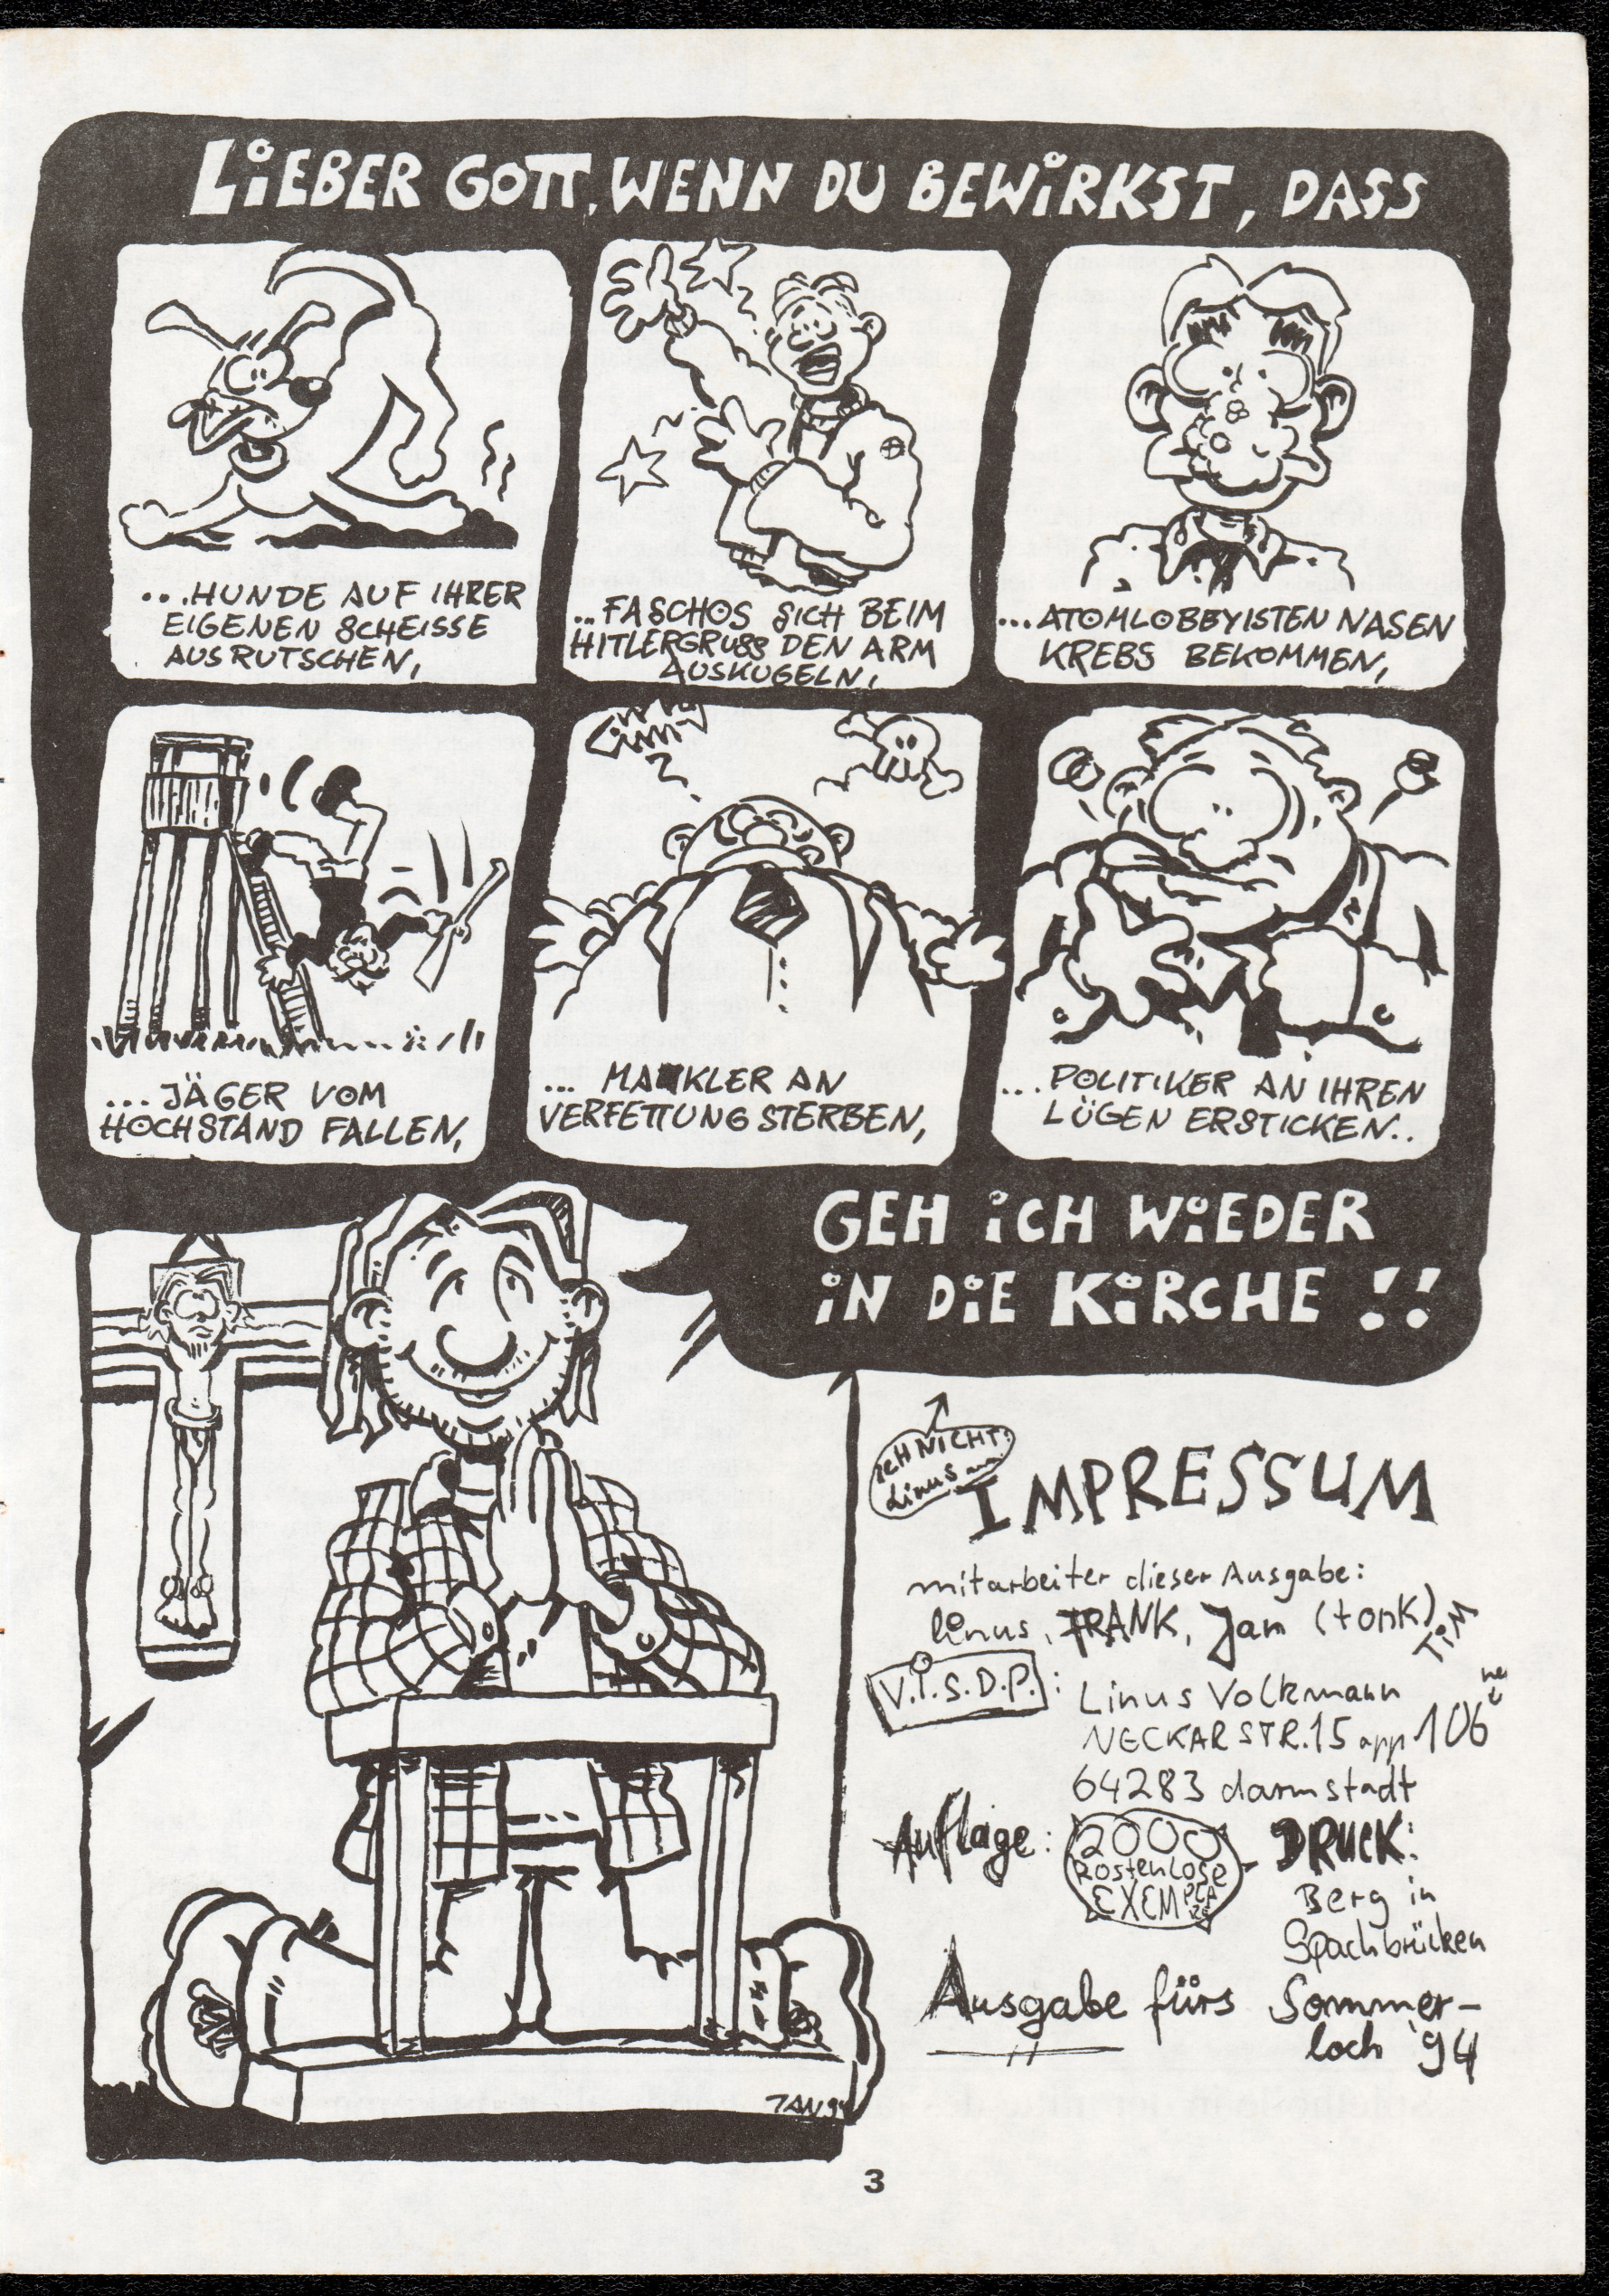 LIEBER GOTT, WENN DU BEWIRKST, DASS
...HUNDE AUF IHRER
EIGENEN SCHEISSE
AUSRUTSCHEN,
...FASCHOS SICH BEIM
HITLERGRUSS DEN ARM
AUSKUGELN,
...ATOMLOBBYISTEN NASEN
KREBS BEKOMMEN,
...JÄGER VOM
HOCHSTAND FALLEN,
... MAKLER AN
VERFETTUNG STERBEN,
...POLITIKER AN IHREN
LÜGEN ERSTICKEN..
GEH ICH WIEDER
IN DIE KIRCHE !!
ICH NICHT!
Linus
IMPRESSUM
mitarbeiter dieser Ausgabe:
linus, FRANK, Jan (tonk)
TIM
V.i.S.D.P.:
Linus Volkmann
NECKARSTR.15 app 106
64283 darmstadt
Auflage:
2000
kostenlose
EXEMPLARE
DRUCK:
Berg in
Spachbrücken
Ausgabe fürs Sommer-
loch '94
JAN 94
3